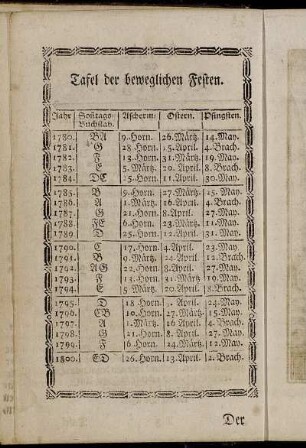 Tafel der beweglichen Festen.
Jahr Soñtags- Buchstab. Ascherm. Ostern. Pfingsten.
1780. BA 9.Horn. 26.Märtz. 14.May.
1781. G 28.Horn. 15.April. 4.Brach.
1782. F 13.Horn. 31.Märtz. 19.May.
1783. E 5.Märtz. 20.April. 8.Brach.
1784. DC 25.Horn. 11.April. 30.May.
1785. B 9.Horn. 27.Märtz. 15.May.
1786. A 1.Märtz. 16.April. 4.Brach.
1787. G 21.Horn. 8.April. 27.May.
1788. FE 6.Horn. 23.Märtz. 11.May.
1789. D 25.Horn. 12.April. 31.May.
1790. C 17.Horn. 4.April. 23.May.
1791. B 9.Märtz. 24.April. 12.Brach.
1792. AG 22.Horn. 8.April. 27.May.
1793. F 13.Horn. 31.Märtz. 19.May.
1794. E 5.Märtz. 20.April. 8.Brach.
1795. D 18.Horn. 5.April. 24.May.
1796. CB 10.Horn. 27.Märtz. 15.May.
1797. A 1.Märtz. 16.April. 4.Brach.
1798. G 21.Horn. 8.April. 27.May.
1799. F 6.Horn. 24.Märtz. 12.May.
1800. ED 26.Horn. 13.April. 2.Brach.
Der